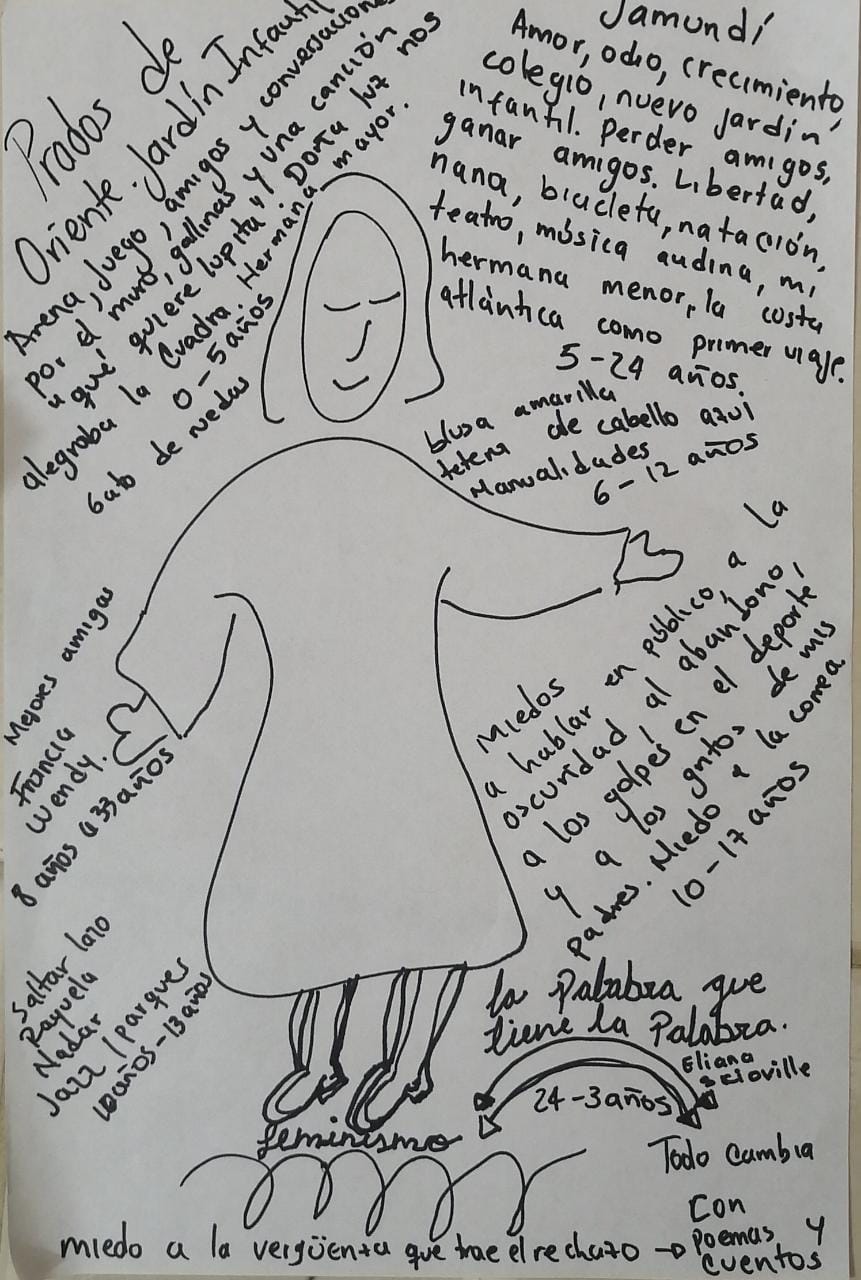 Prados de
Oriente. Jardín Infantil
Arena, Juego, amigos y conversaciones
por el muro, gallinas y una canción
"qué quiere lupita". Doña luz nos
alegraba la cuadra. Hermana mayor.
0-5 años
Gato de ruedas
Jamundí
Amor, odio, crecimiento,
colegio, nuevo jardín
infantil. Perder amigos,
ganar amigos. Libertad,
nana, bicicleta, natación,
teatro, música audina, mi
hermana menor, la costa
atlántica como primer viaje.
5-24 años.
blusa amarilla
tetera de cabello azul
Manualidades
6-12 años
Mejores amigas
Francia
Wendy.
8 años a 33 años
Miedos
a hablar en público, a la
oscuridad, al abandono,
a los golpes en el deporte,
y a los gritos de mis
padres. Miedo a la correa
10-17 años
Saltar lazo
Rayuela
Nadar
Jazz / parques
10 años-13 años
la Palabra que
tiene la Palabra.
Eliana
Eloville
24-3 años
feminismo
Todo cambia
Con
poemas y
cuentos
miedo a la vergüenza que trae el rechazo →